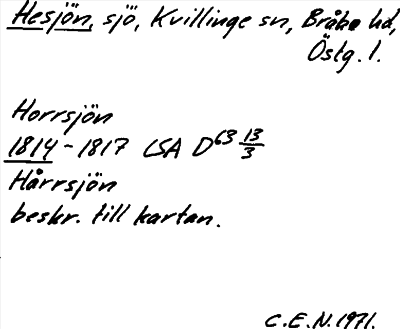 Hesjön, sjö, Kvillinge sn, Bråbo hd,
Östg. l.
Horrsjön
1814 - 1817 LSA D63 13/3
Hårrsjön
beskr. till kartan.
C.E.N. 1971.